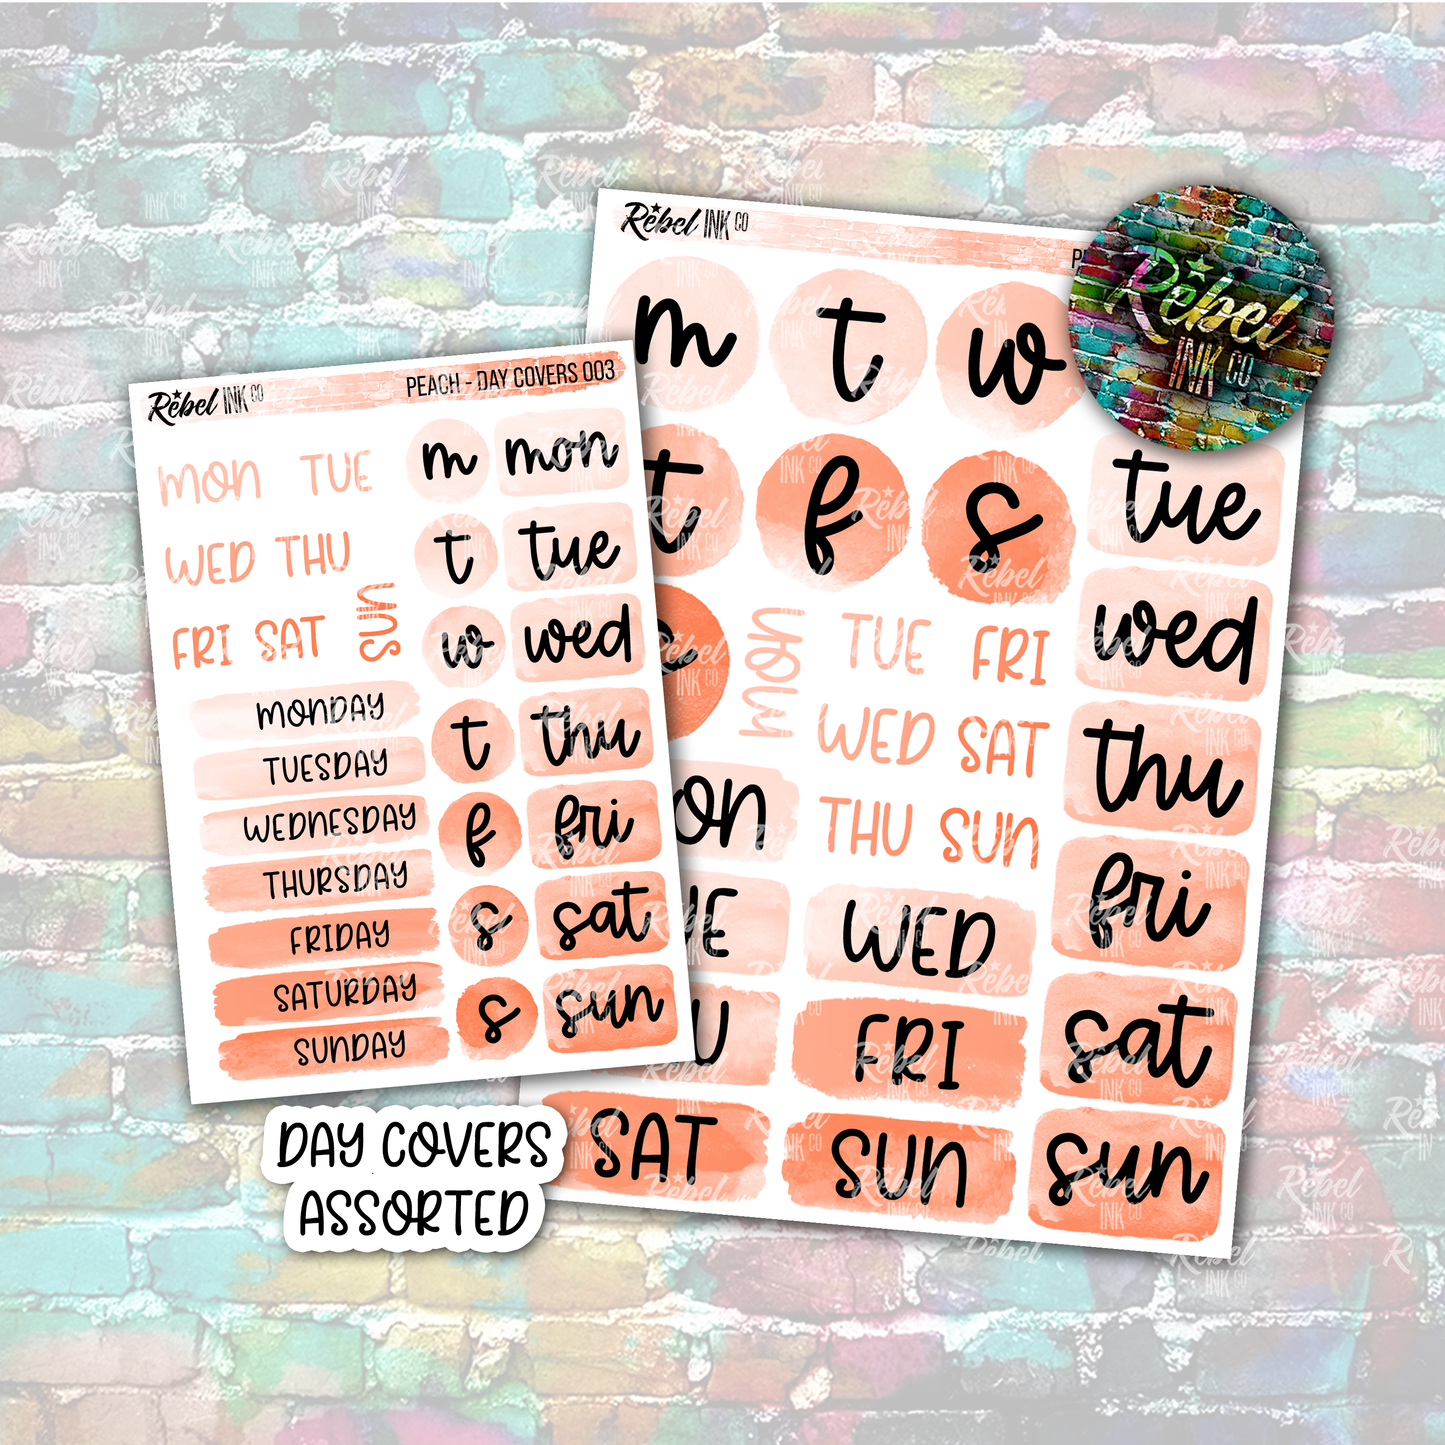 Rebel INK CO
PEACH - DAY COVERS 003
MON TUE
WED THU
FRI SAT
SUN
MONDAY
TUESDAY
WEDNESDAY
THURSDAY
FRIDAY
SATURDAY
SUNDAY
m mon
t tue
w wed
t thu
f fri
s sat
s sun
DAY COVERS
ASSORTED
Rebel INK CO
m t w
t f s
MON TUE FRI
WED SAT
THU SUN
WED
FRI
SAT SUN
tue
wed
thu
fri
sat
sun
Rebel
INK CO